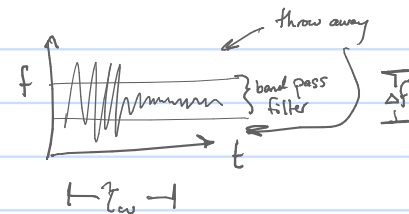 throw away
f
band pass
filter
Δf
t